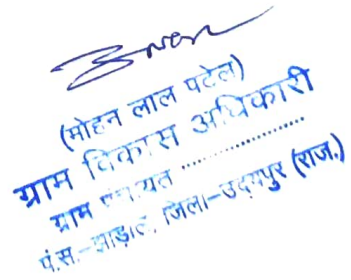 (मोहन लाल पटेल)
ग्राम विकास अधिकारी
ग्राम पंचायत ....................
पं.स.-झाड़ोल, जिला-उदयपुर (राज.)